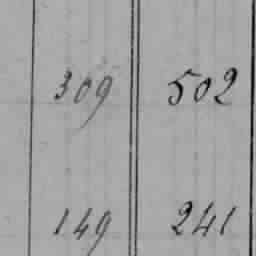 309 502
149 241